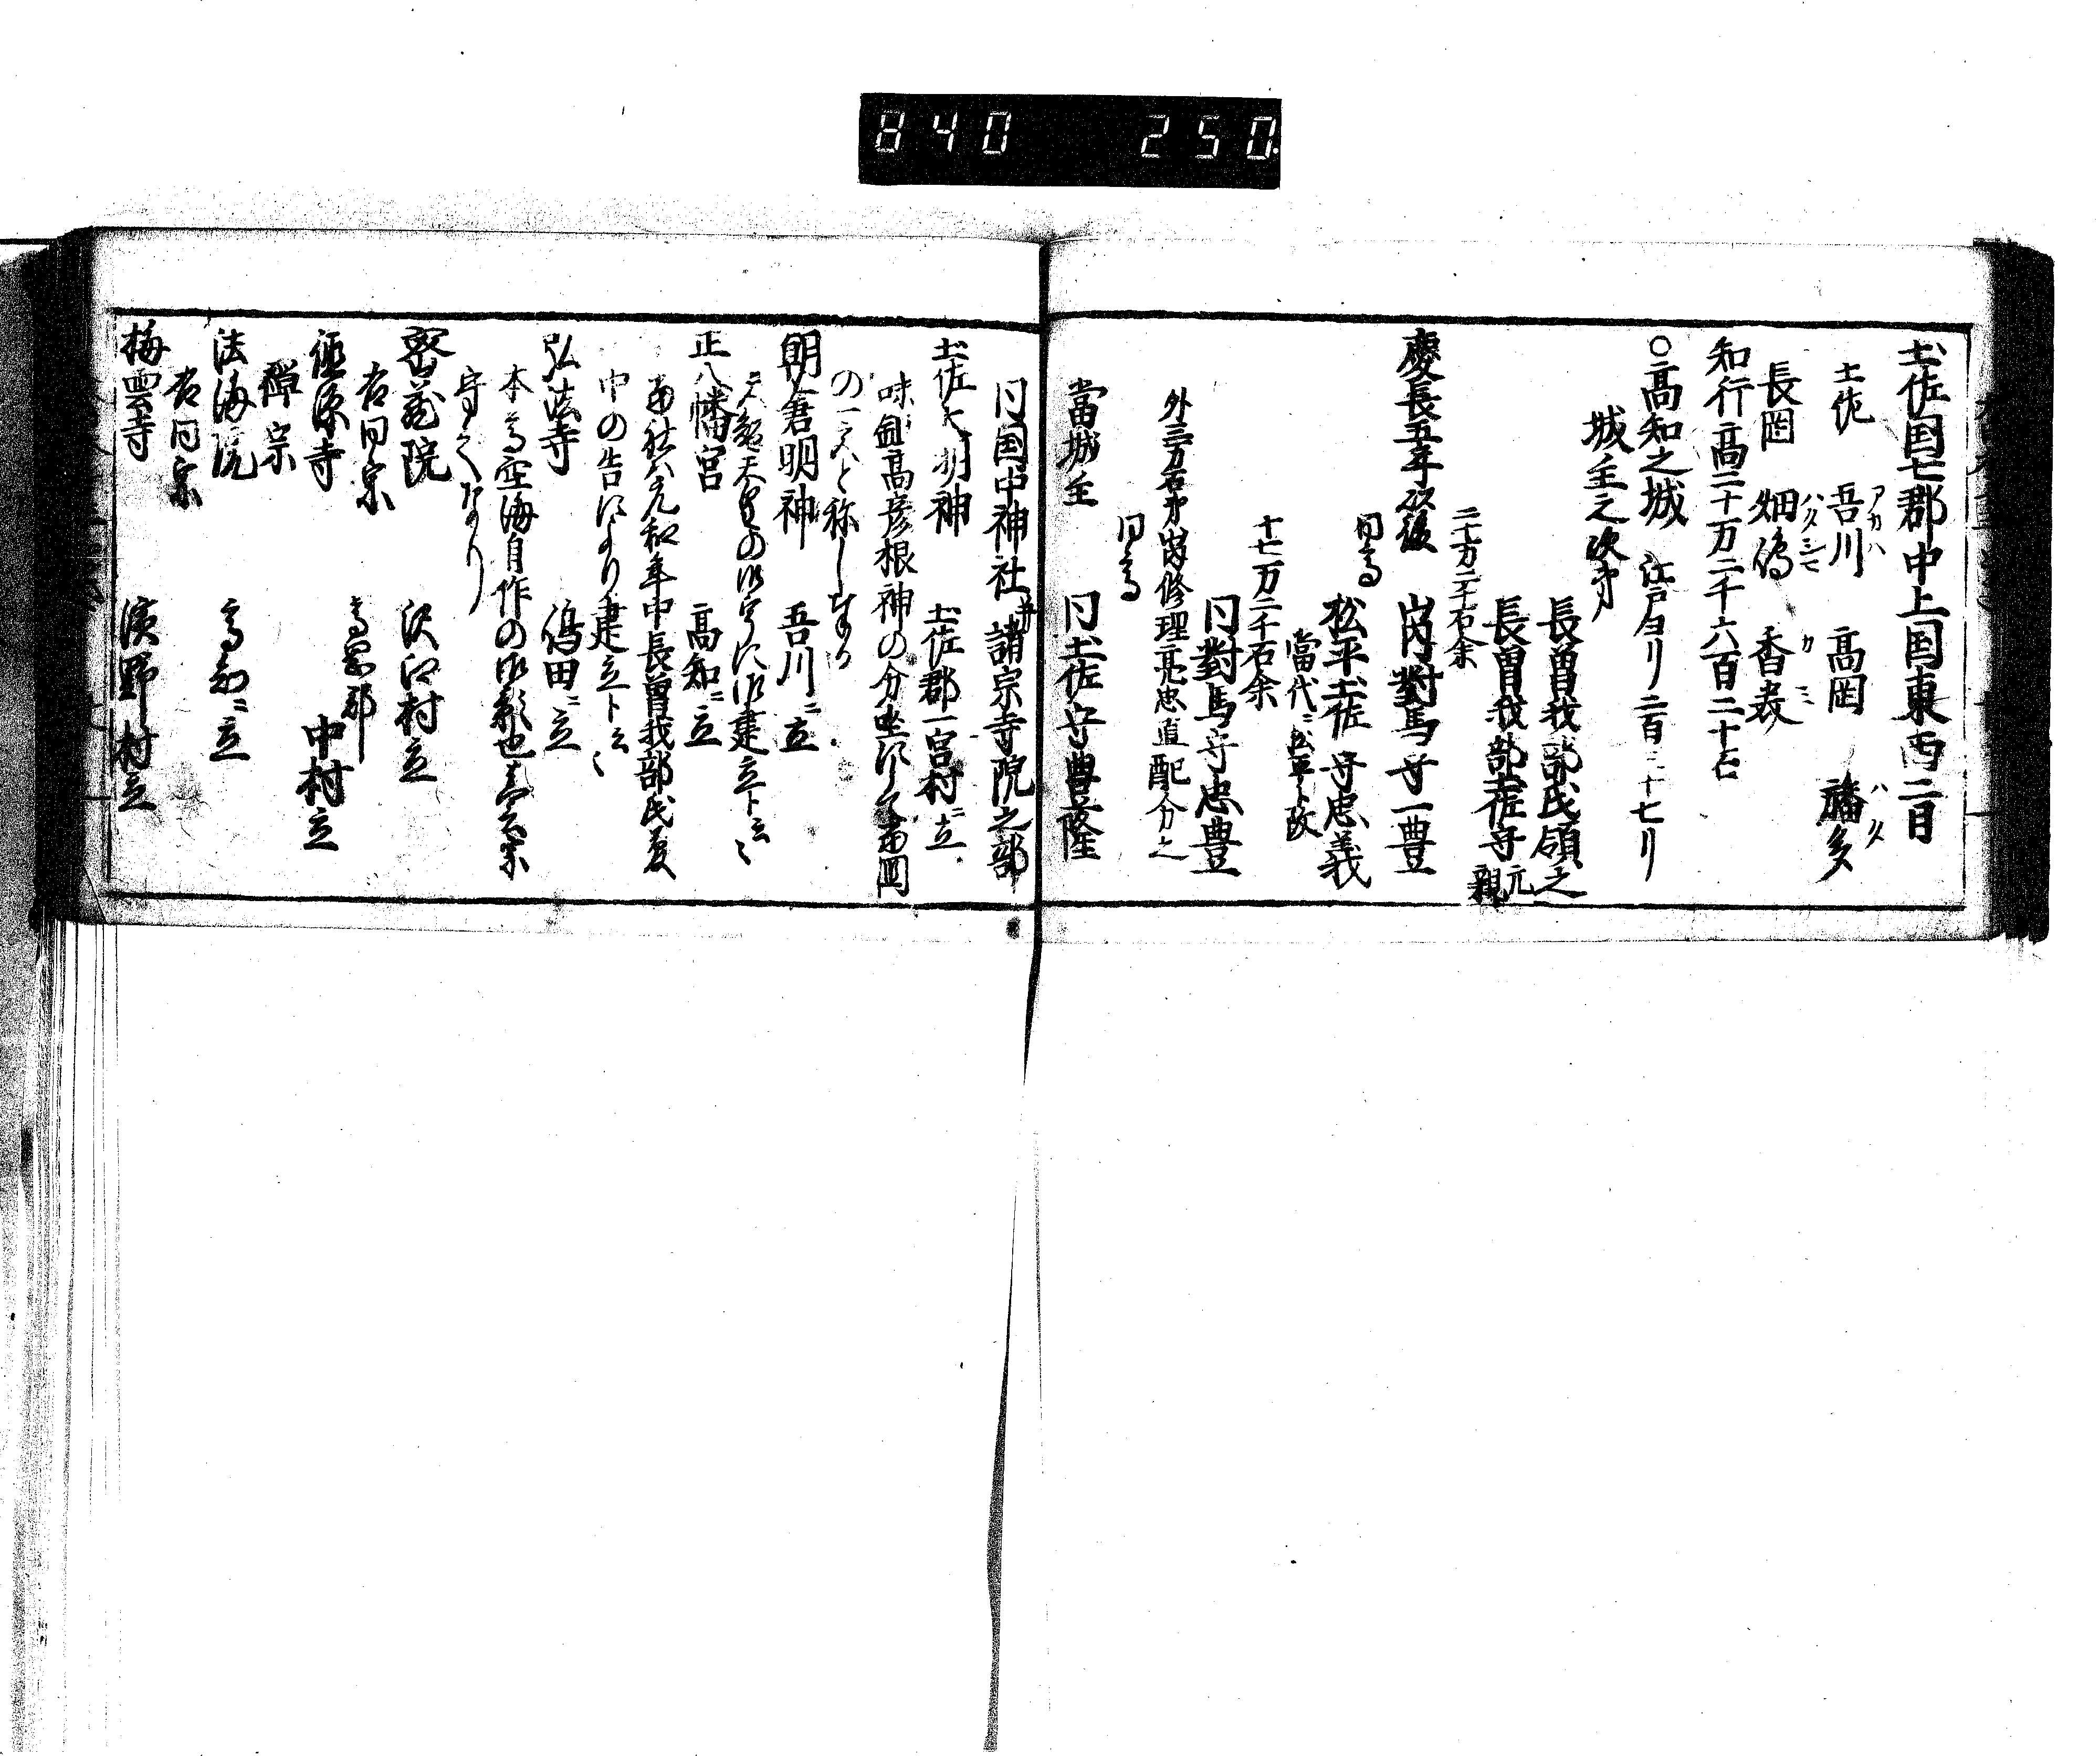 840 250
土佐国七郡中上国東西二日
土佐 吾川 高岡 幡多
アカハ ハタ
長岡 畑嶋 香美
ハタシマ カミ
知行高二十万二千六百二十石
○高知之城 江戸ヨリ二百二十七リ
城主之次第
長曽我部氏領之
長曽我部土佐守元親
二十万二千石余
慶長五年以後 山内對馬守一豊
同高
松平土佐守忠義
當代ニ松平ト改
十七万二千石余
同對馬守忠豊
外三万石弟山内修理亮忠直配分之
同高
當城主 同土佐守豊隆
同国中神社并諸宗寺院之部
土佐大明神 土佐郡一宮村ニ立
味鉏高彦根神の分出にして當国
の一宮と称し
朝倉明神 吾川ニ立
天智天皇の御宇に御建立ト云々
正八幡宮 高知ニ立
當社ハ元和年中長曽我部氏夏
中の告により建立ト云々
弘法寺 嶋田ニ立
本尊空海自作の御影也真言宗
守之なり
密蔵院 沢江村立
右同宗 高岡郡
極深寺 中村立
禅宗
法海院 高知ニ立
右同宗
梅雲寺 濱野村立